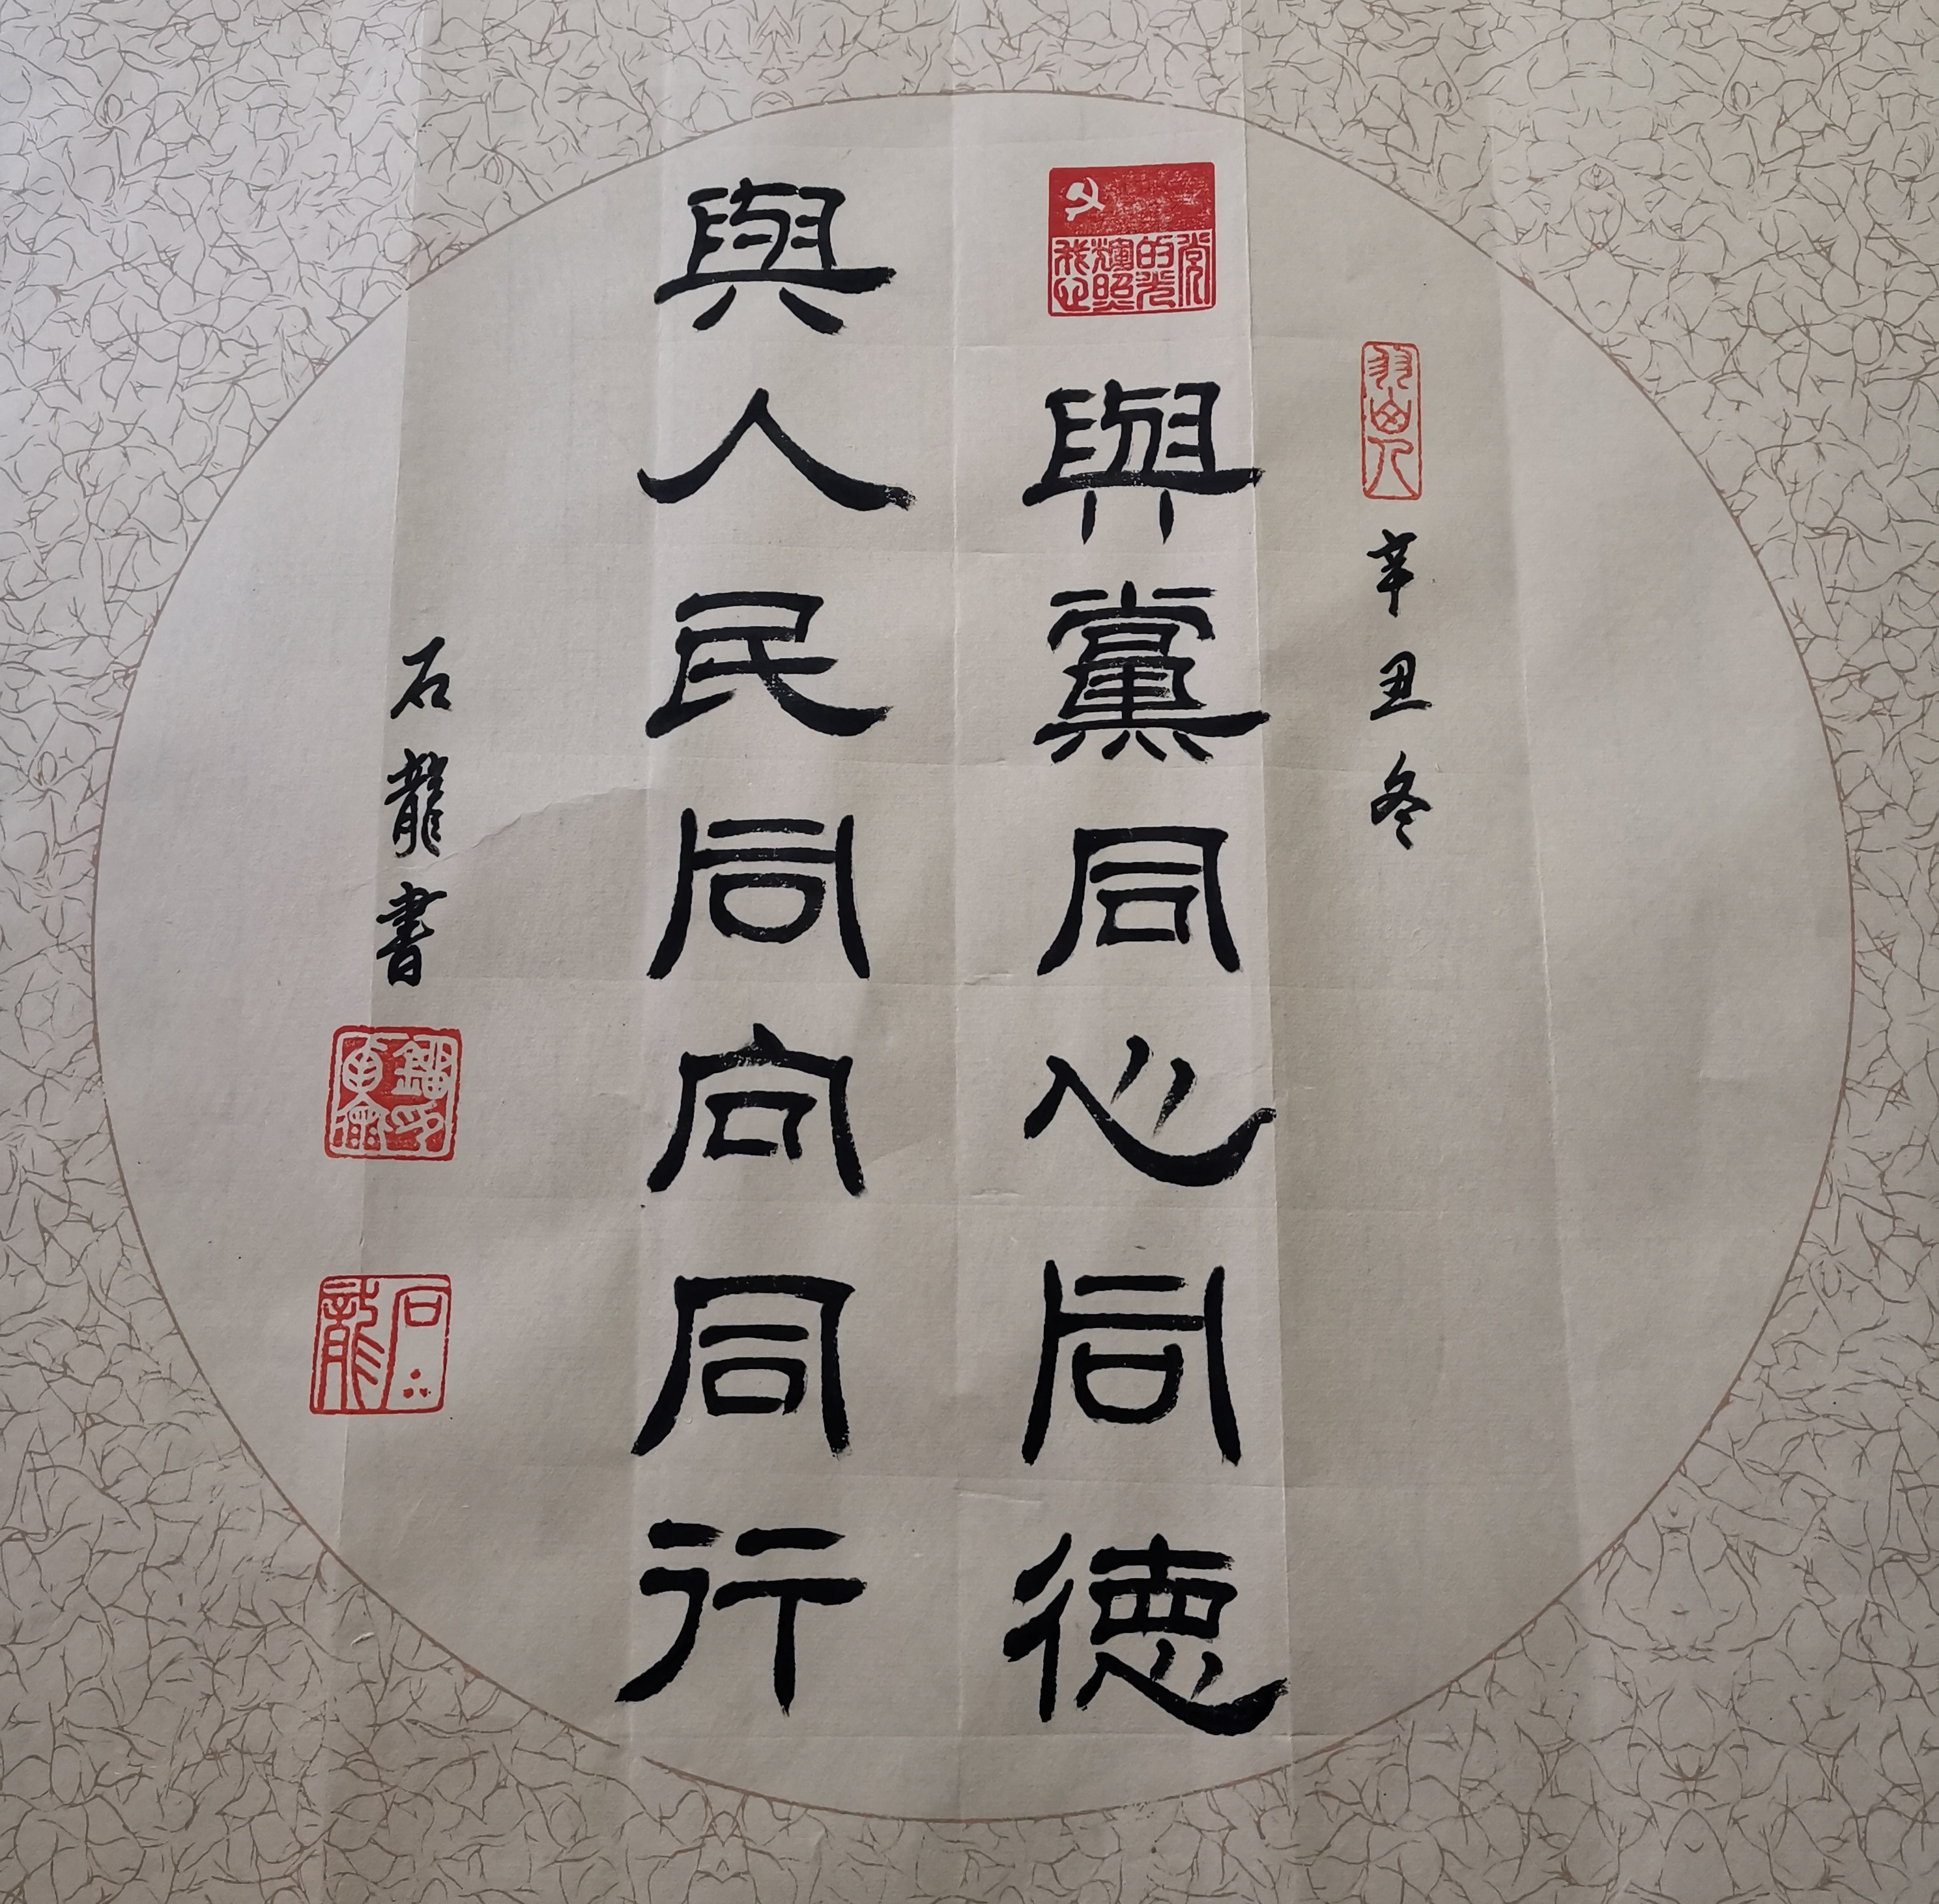 辛丑冬
與黨同心同德
與人民同向同行
石龍書
党的光輝照我心
石龍